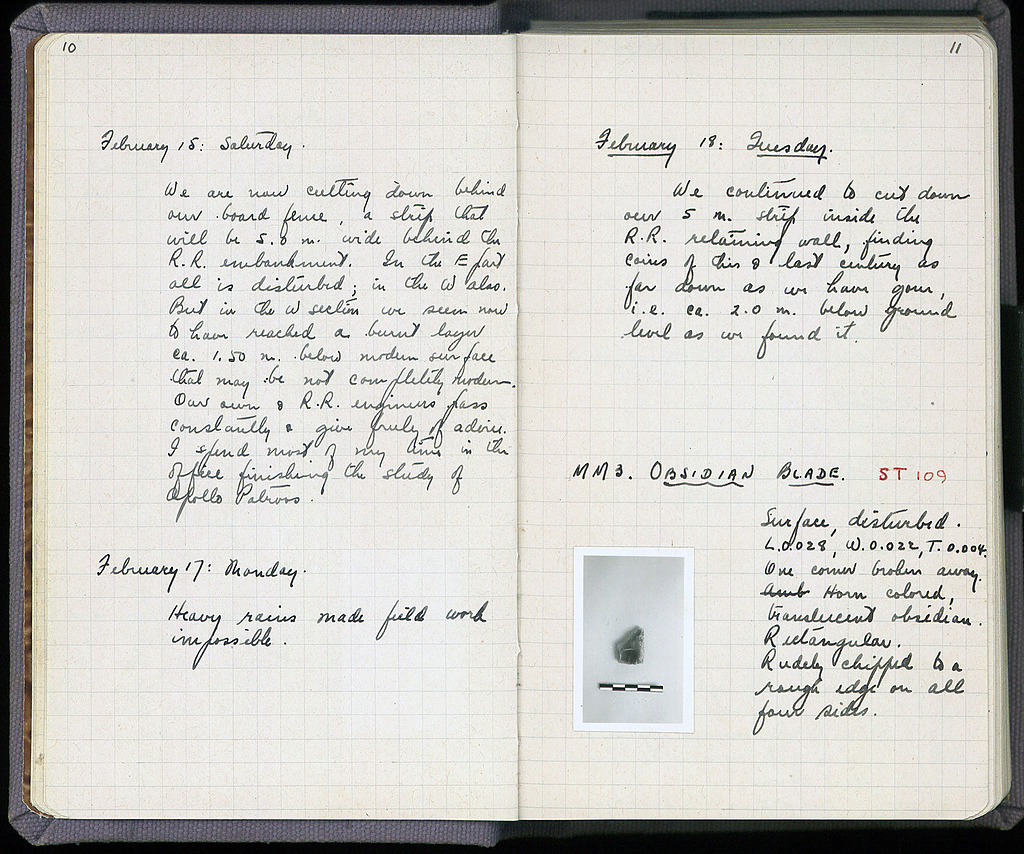 10
February 15: Saturday.
We are now cutting down behind
our board fence, a strip that
will be 5.0 m. wide behind the
R.R. embankment. In the E part
all is disturbed; in the W also.
But in the W section we seem now
to have reached a burnt layer
ca. 1.50 m. below modern surface
that may be not completely modern.
Our own & R.R. engineers pass
constantly & give freely of advice.
I spend most of my time in the
office finishing the study of
Apollo Patroos.
February 17: Monday.
Heavy rains made field work
impossible.
11
February 18: Tuesday.
We continued to cut down
our 5 m. strip inside the
R.R. retaining wall, finding
coins of this & last century as
far down as we have gone,
i.e. ca. 2.0 m. below ground
level as we found it.
MM3. OBSIDIAN BLADE. ST 109
Surface, disturbed.
L.0.028, W.0.022, T.0.004.
One corner broken away.
Amb Horn colored,
translucent obsidian.
Rectangular.
Rudely chipped to a
rough edge on all
four sides.